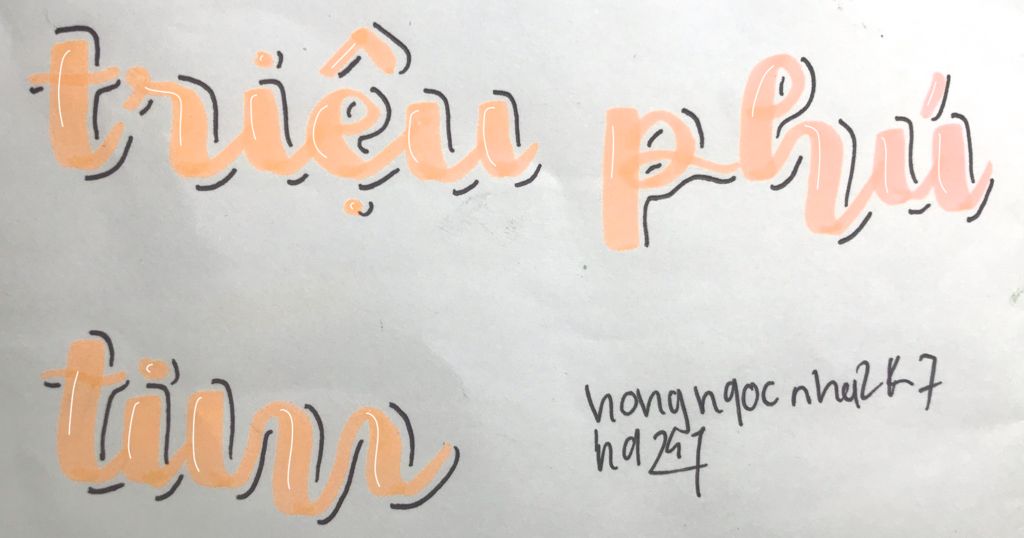 triệu phú
tim
hongngocnha2k7
ha247